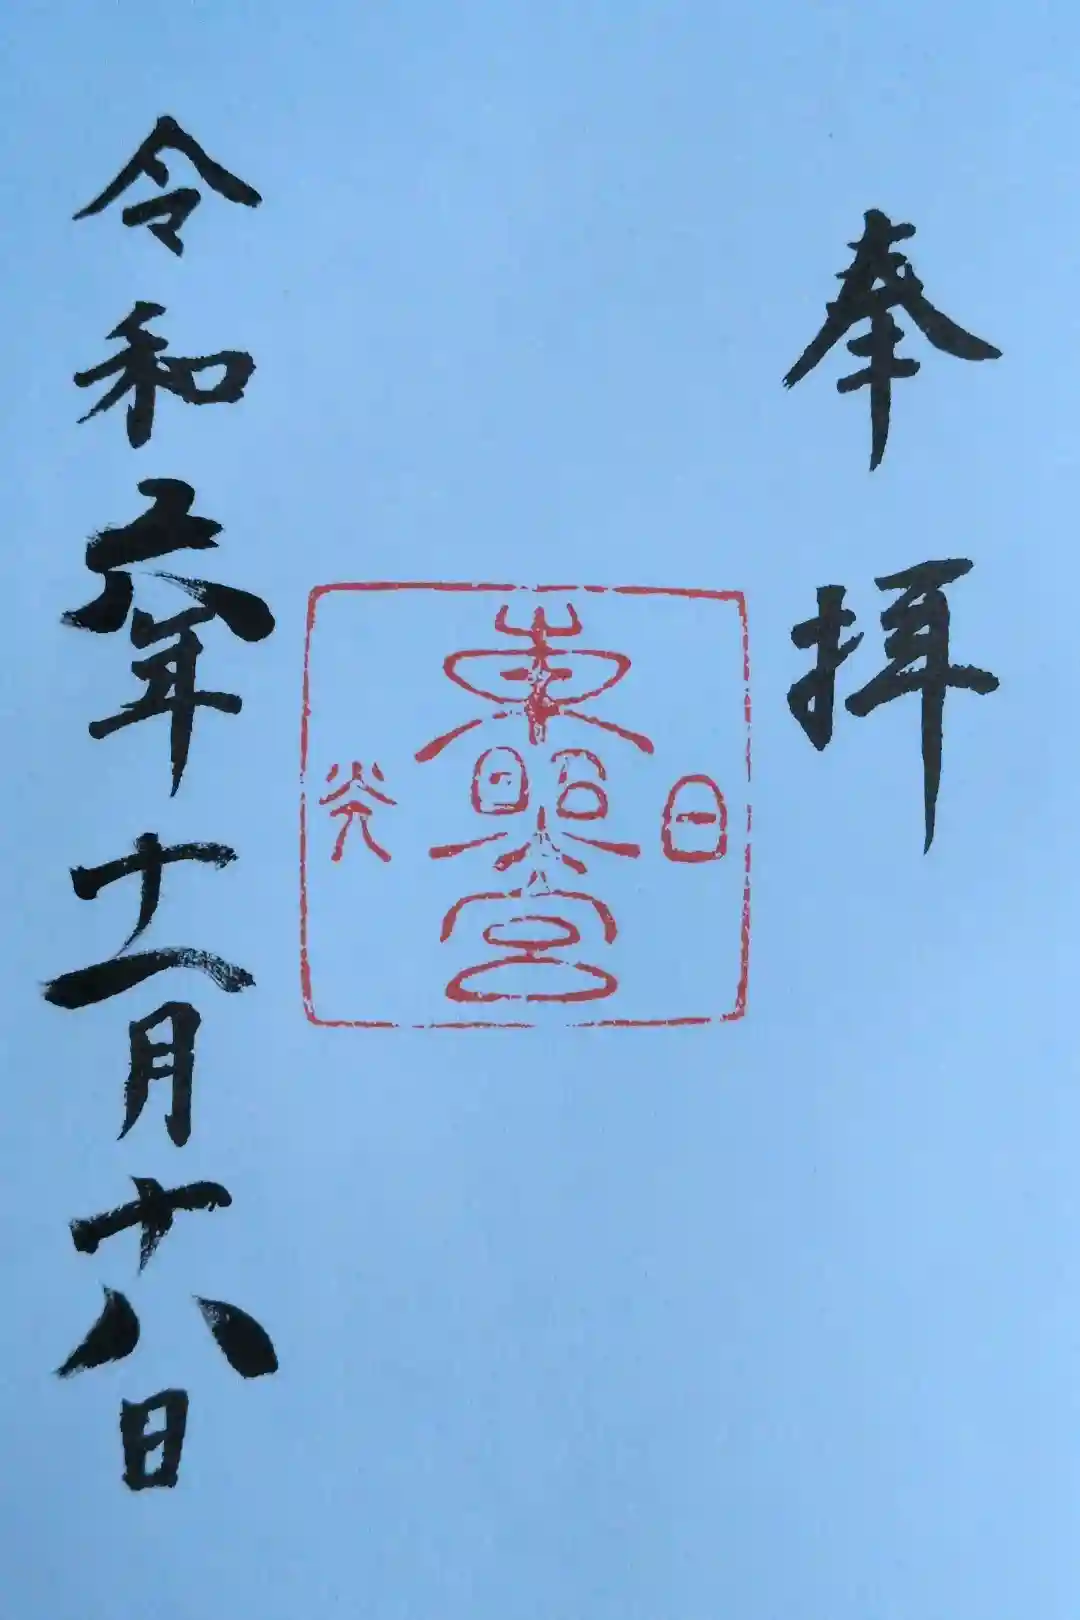 奉拝
日
東照宮
光
令和六年十一月十八日